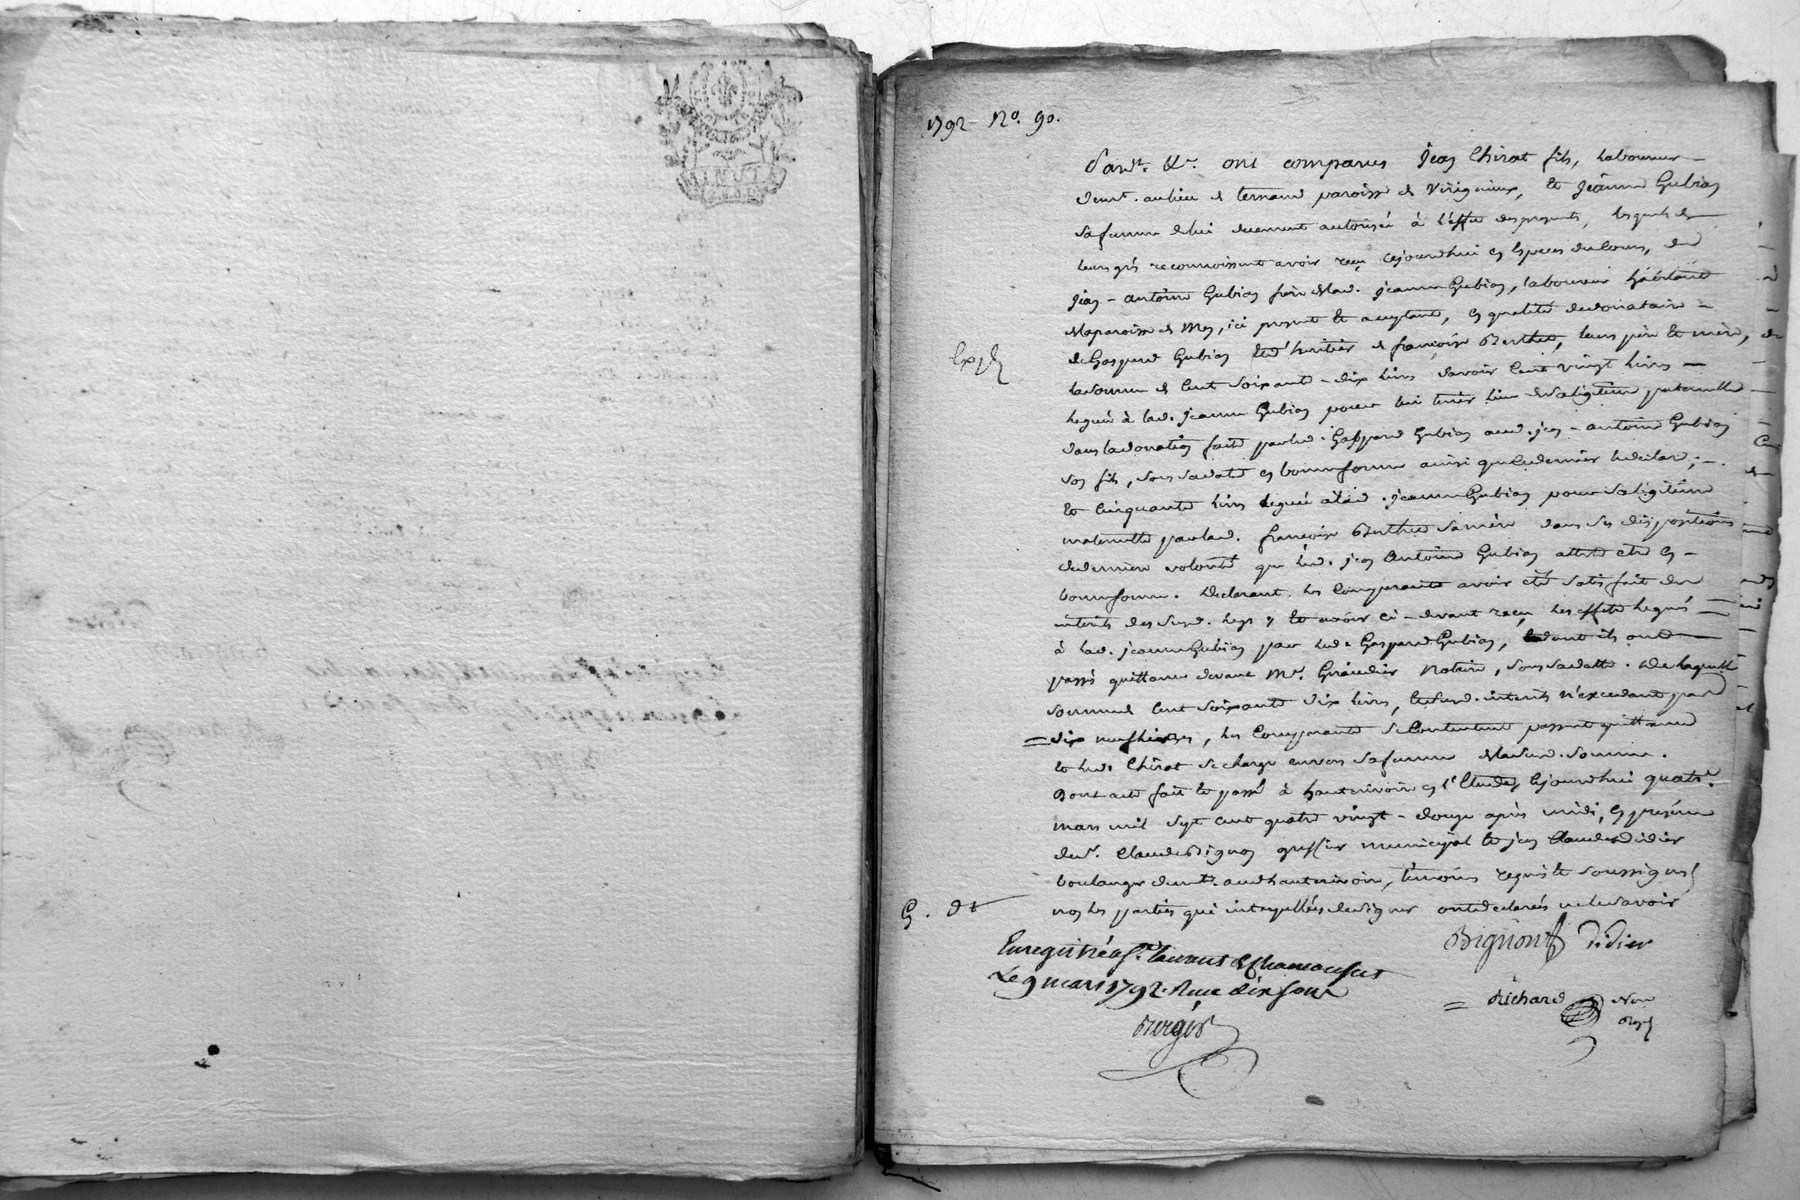 MINUT
1792 No. 90.
Pardt. &c. ont comparus Jean Chirat fils, laboureur
demt. au lieu de ternand paroisse de Virigneux, et Jeanne Gubian
sa femme de lui duement autorisée à l'effet des presents, lesquels de
leurs grés reconnoissent avoir reçu cejourdhui en Especes du Cours, de
Jean-antoine Gubian frère de lad. Jeanne Gubian, laboureur habitant
de la paroisse de Mey, ici present et acceptant, en qualité de donataire
de Gaspard Gubian et d'heritier de françoise Berthet, leurs père et mère,
Expd
la somme de Cent soixante-dix livres savoir Cent vingt livres
legués à lad. Jeanne Gubian pour lui tenir lieu de sa légitime paternelle
dans la donation faite par led. Gaspard Gubian aud. jean-antoine Gubian
son fils, sous sa date en bonne forme ainsi que ce dernier le declare;
et Cinquante livres legués à lad. jeanne Gubian pour sa légitime
maternelle par lad. françoise Berthet sa mère dans ses dispositions
de derniere volonté que led. jean Antoine Gubian atteste etre en
bonne forme. Declarant les Comparants avoir été satisfait des
interets des susd. legs & et avoir ci-devant reçu les effets legués
à lad. jeanne Gubian par led. Gaspard Gubian, dont ils ont
passés quittance devant Me. Giraudier Notaire, sous sa datte. De laquelle
somme de Cent soixante dix livres, lesd. interets n'excedant pas
dix neuf livres, les Comparants se Contentent passent quittance
et led. Chirat se charge envers sa femme de la susd. somme.
Dont acte fait et passé à hauterivoire en l'Etude, Cejourdhui quatre
mars mil sept cent quatre vingt-douze après midi, En présence
de sr. Claude Bignon greffier municipal et jean Claude Didier
boulanger demt. aud. hauterivoire, témoins requis et soussignés
non les parties qui interpellées de signer ont declarés ne le savoir
G. dt
Bignon Didier
Enregistré à St. laurent de Chamousset
Le 9 mars 1792. Reçu dix sous
Richard Nre
Royl
Bergés